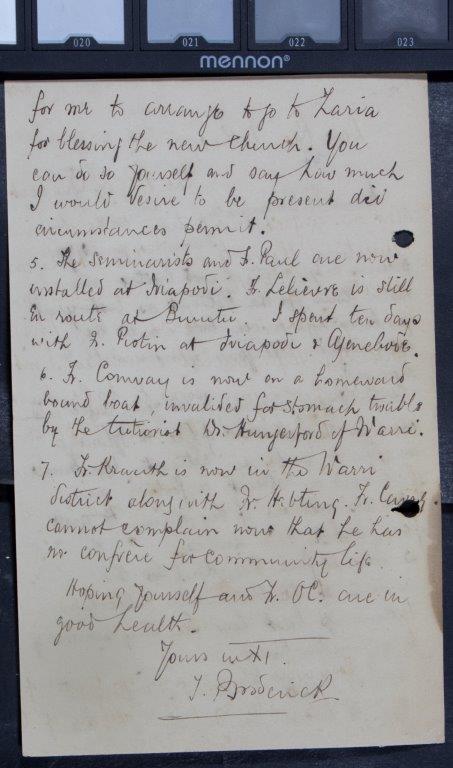 020 021 022 023
mennon®
for me to arrange to go to Zaria
for blessing the new Church. You
can do so yourself and say how much
I would desire to be present did
circumstances permit.
5. The seminarists and Fr. Paul are now
installed at . Fr. Lelievre is still
En route at . I spent ten days
with Fr. Piotin at &
6. Fr. Conway is now on a homeward
bound boat, invalided for stomach trouble
by the Dr. Hungerford of Warri.
7. Fr. Krauth is now in the Warri
district along with Fr. Hebting. Fr.
cannot complain now that he has
no confrère for community life.
Hoping yourself and Fr. OC. are in
good health.
Yours in X1.
T. Broderick